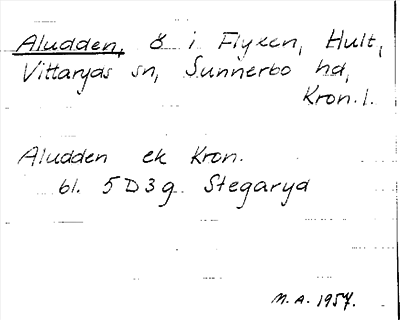 Aludden, ö i Flyxen, Hult,
Vittaryds sn, Sunnerbo hd,
Kron. l.
Aludden ek Kron.
bl. 5D3g Stegaryd
M.A. 1957.